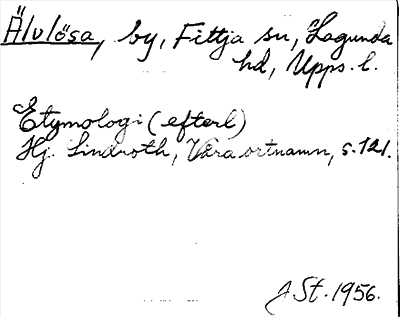 Älvlösa, by, Fittja sn, Lagunda
hd, Upps. l.
Etymologi (efterl)
Hj. Lindroth, Våra ortnamn, s. 121.
J St. 1956.